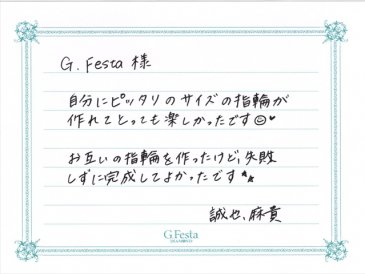 G. Festa 様
自分にピッタリのサイズの指輪が
作れてとっても楽しかったです☺♥
お互いの指輪を作ったけど、失敗
しずに完成してよかったです★★
誠也、麻貴
G.Festa
DIAMOND